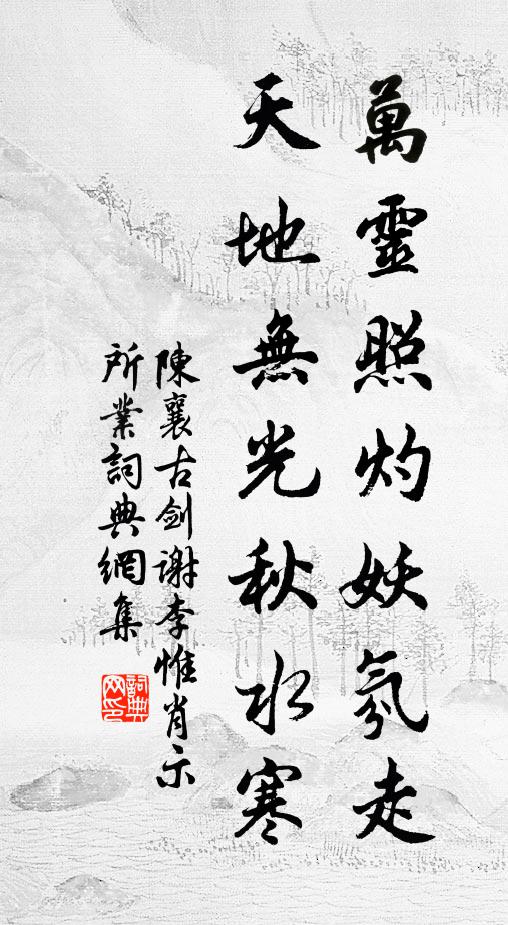 萬靈照灼妖氛走
天地無光秋水寒
陳襄古劍謝李惟肖示
所業詞典網集
詞典網印